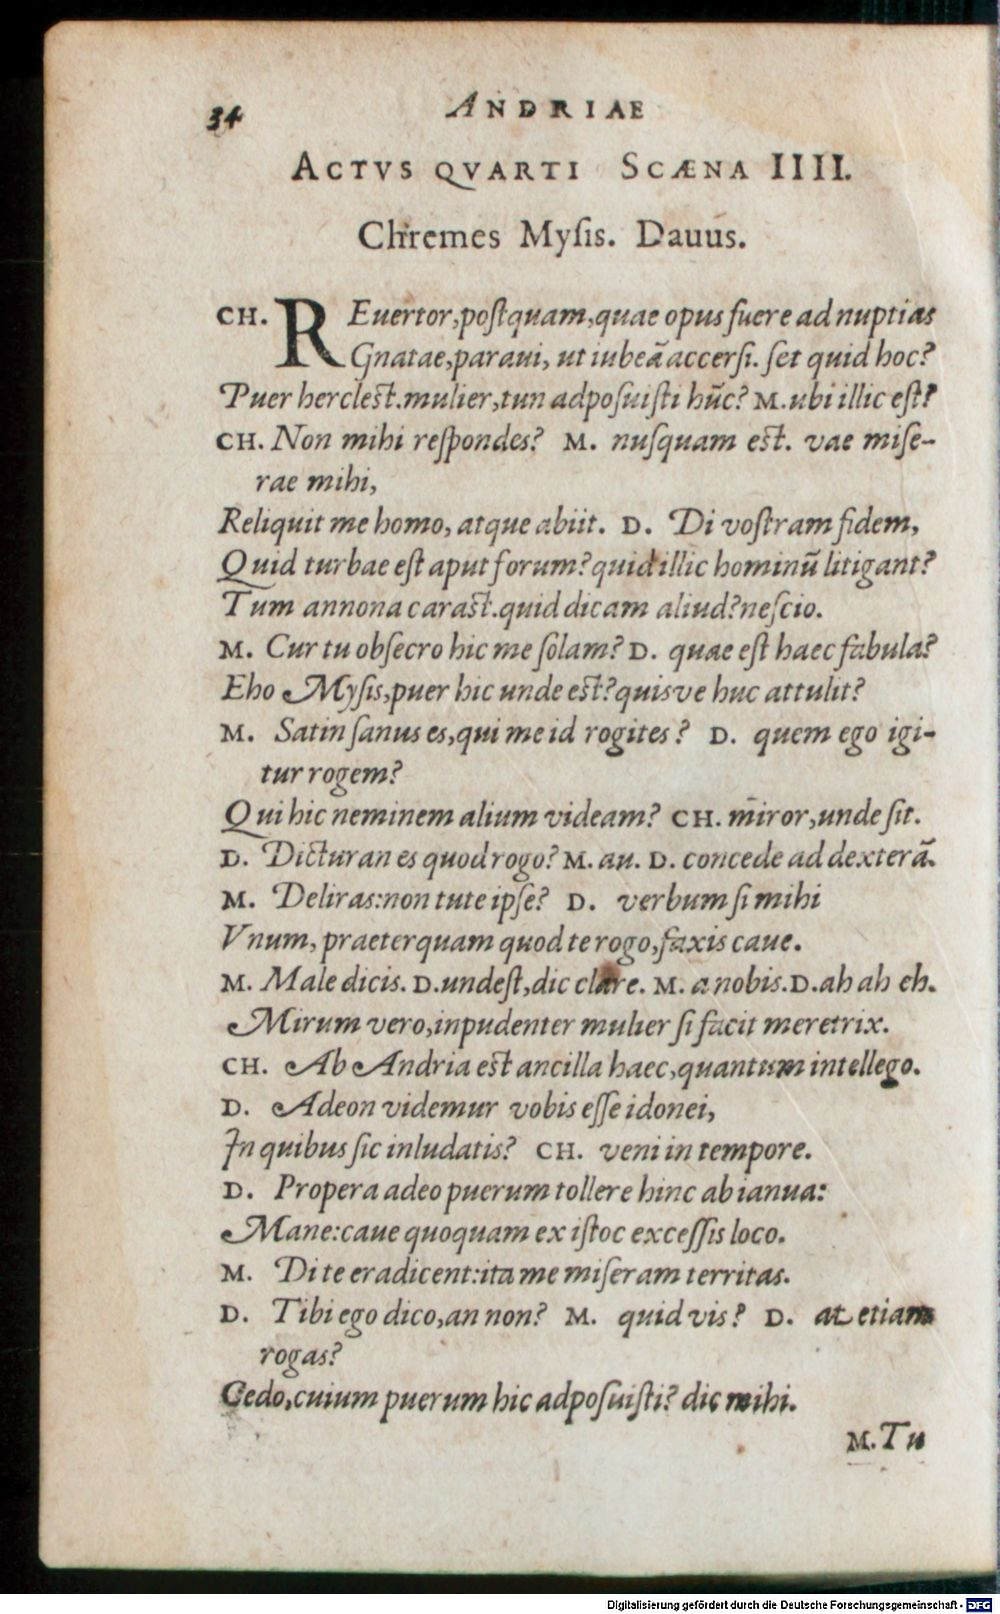 34 ANDRIAE
ACTVS QVARTI SCÆNA IIII.
Chremes Myſis. Dauus.
CH. REuertor,poſtquam,quae opus fuere ad nuptias
Gnatae,paraui, ut iubeā accerſi. ſet quid hoc?
Puer herclest.mulier,tun adpoſuiſti hūc? M.ubi illic eſt?
CH. Non mihi reſpondes? M. nuſquam est. vae miſe-
rae mihi,
Reliquit me homo, atque abiit. D. Di voſtram fidem,
Quid turbae eſt aput forum? quid illic hominū litigant?
Tum annona carast.quid dicam aliud?neſcio.
M. Cur tu obſecro hic me ſolam? D. quae eſt haec fabula?
Eho Myſis,puer hic unde est?quisve huc attulit?
M. Satin ſanus es,qui me id rogites? D. quem ego igi-
tur rogem?
Qui hic neminem alium videam? CH. miror,unde ſit.
D. Dicturan es quod rogo? M. au. D. concede ad dexterā.
M. Deliras:non tute ipſe? D. verbum ſi mihi
Vnum, praeterquam quod te rogo,faxis caue.
M. Male dicis. D.undeſt,dic clare. M. a nobis.D.ah ah eh.
Mirum vero,inpudenter mulier ſi facit meretrix.
CH. Ab Andria est ancilla haec,quantum intellego.
D. Adeon videmur vobis eſſe idonei,
In quibus ſic inludatis? CH. veni in tempore.
D. Propera adeo puerum tollere hinc ab ianua:
Mane:caue quoquam ex iſtoc exceſſis loco.
M. Di te eradicent:ita me miſeram territas.
D. Tibi ego dico,an non? M. quid vis? D. at etiam
rogas?
Cedo,cuium puerum hic adpoſuiſti? dic mihi.
M.Tu
Digitalisierung gefördert durch die Deutsche Forschungsgemeinschaft - DFG